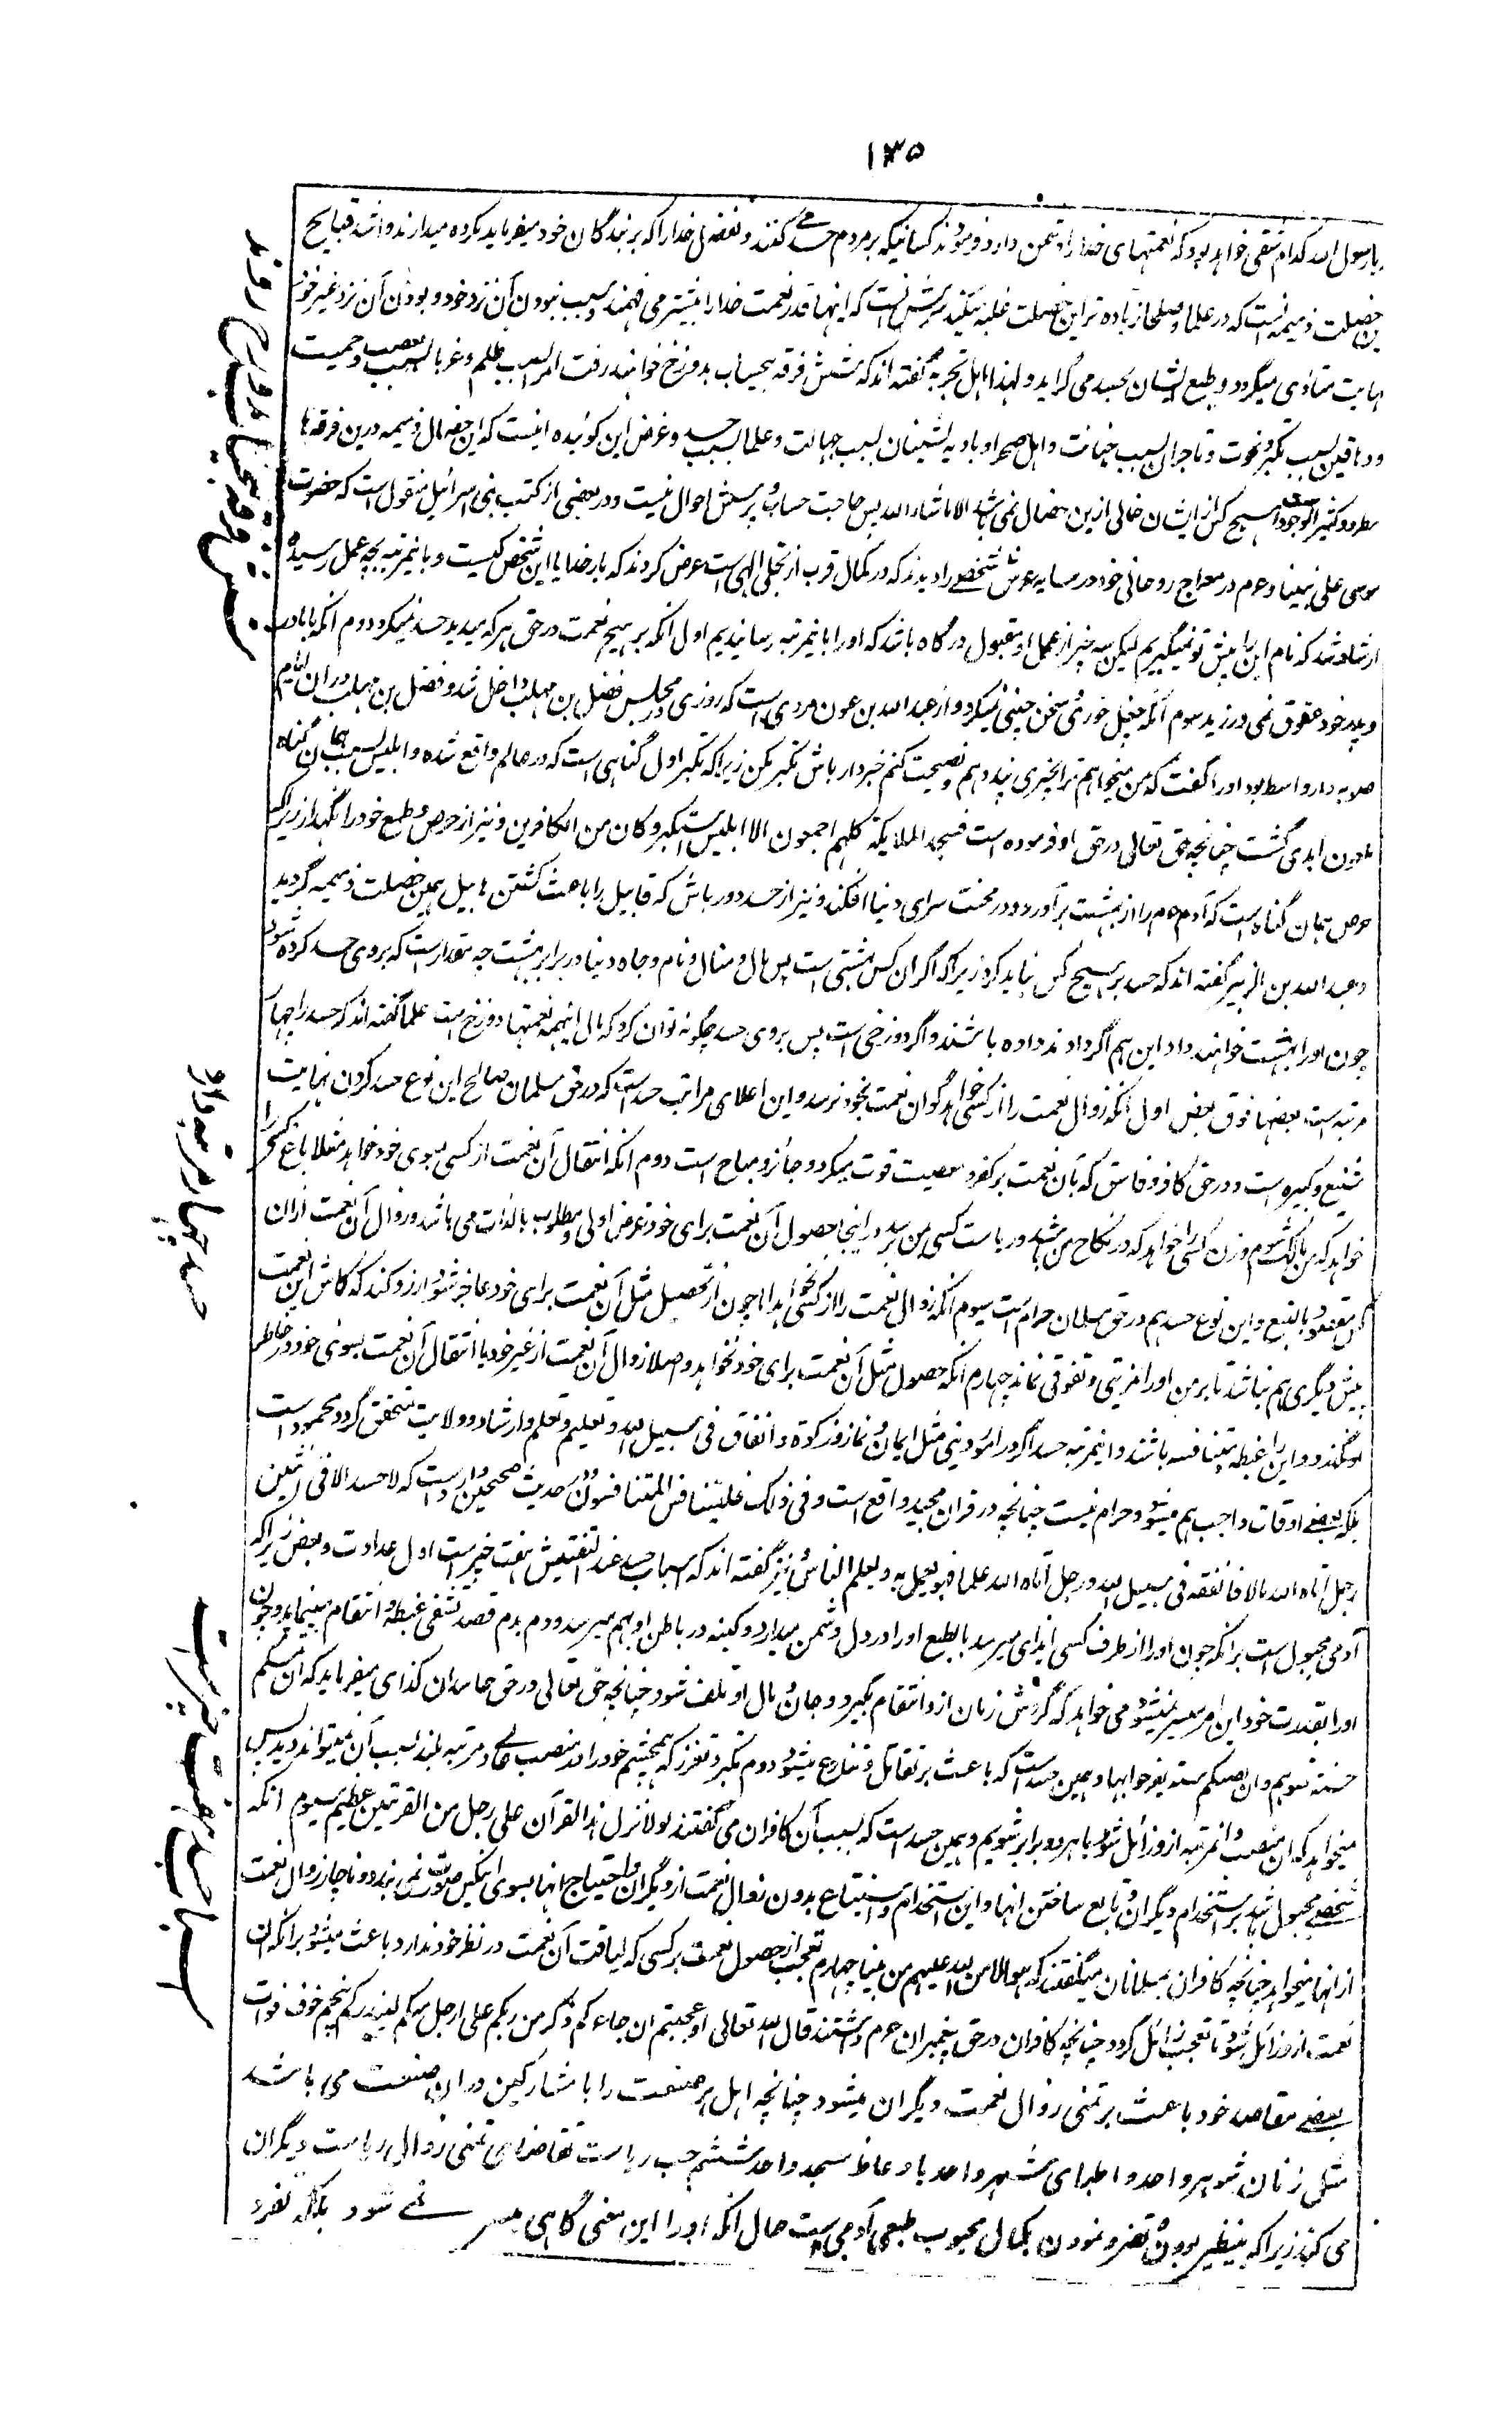 ۱۳۵
یارسول الله کدام شقی خواهد بود که نعمتهای خدا را دشمن دارد فرمودند کسانیکه بر مردم حسد می کنند و تفضل خدا را که بر بندگان خود میفرماید مکروه میدارند و اشد قبایح
این خصلت ذمیمه آنست که در علما و صلحا زیاده تر این خصلت غلبه میکند سرش آنست که اینها قدر نعمت خدا را بیشتر می فهمند و بسبب نبودن آن نزد خود و بودن آن نزد غیر خود
نهایت متاذی میگردد و طبع ایشان بحسد می گراید و لهذا اهل تجربه گفته اند که شش فرقه بیحساب بدوزخ خواهند رفت امرا بسبب ظلم و عربا بسبب تعصب و حمیت
و دهاقین بسبب تکبر و نخوت و تاجران بسبب خیانت و اهل صحرا و بادیه نشینان بسبب جهالت و علما بسبب حسد و غرض این گوینده اینست که این خصال ذمیمه درین فرقه ها
مطرد و کثیر الوجود است هیچ کس از ایشان خالی ازین خصال نمی باشد الا ماشاء الله پس حاجت حساب و پرسش احوال نیست و در بعضی از کتب بنی اسرائیل منقول است که حضرت
موسی علی نبینا و عم در معراج روحانی خود در سایه عرش شخصی را دیدند که در کمال قرب از تجلی الهی است عرض کردند که بار خدایا این شخص کیست و باینمرتبه بچه عمل رسیده
ارشاد شد که نام این را پیش تو نمیگیریم لیکن سه چیز از عمل او مقبول درگاه باشد که او را باینمرتبه رسانیدیم اول آنکه بر هیچ نعمت در حق هر که میدید حسد نمیکرد دوم آنکه با مادر
و پدر خود عقوق نمی ورزید سوم آنکه چغل خوری و سخن چینی نمیکرد و از عبد الله بن عون مروی است که روزی در مجلس فضل بن مهلب داخل شد و فضل بن مهلب در ان ایام
صوبه دار واسط بود او را گفت که من میخواهم ترا بچیزی پند دهم و نصیحت کنم خبردار باش تکبر مکن زیرا که تکبر اول گناهی است که در عالم واقع شده و ابلیس بسبب همان گناه
ملعون ابدی گشت چنانچه حق تعالی در حق او فرموده است فسجد الملایکة کلهم اجمعون الا ابلیس استکبر و کان من الکافرین و نیز از حرص و طمع خود را نگهدار زیرا که
حرص همان گناه است که آدم عم را از بهشت برآورد و در محنت سرای دنیا افکند و نیز از حسد دور باش که قابیل را باعث کشتن هابیل همین خصلت ذمیمه گردید
و عبد الله بن الزبیر گفته اند که حسد بر هیچ کس نباید کرد زیرا که اگر ان کس بهشتی است پس مال و منال و نام و جاه دنیا در برابر بهشت چه مقدار است که بر وی حسد کرده شود
چون او را بهشت خواهند داد این هم اگر دادند داده باشند و اگر دوزخی است پس بر وی حسد چگونه توان کرد که مال اینهمه نعمتها دوزخ است علما گفته اند که حسد را چهار
مرتبه است بعضها فوق بعض اول آنکه زوال نعمت را از کسی خواهد گو ان نعمت بخود نرسد و این اعلای مراتب حسد است که در حق مسلمان صالح این نوع حسد کردن نهایت
شنیع و کبیره است و در حق کافر و فاسق که بآن نعمت بر کفر و معصیت قوت میگیرد جائز و مباح است دوم آنکه انتقال آن نعمت از کسی بسوی خود خواهد مثلا باغ کسی را
خواهد که من مالک شوم و زن کسی را خواهد که در نکاح من باشد و ریاست کسی بمن برسد در اینجا حصول آن نعمت برای خود غرض اولی و مطلوب بالذات می باشد و زوال آن نعمت از ان
کس مقصود بالتبع و این نوع حسد هم در حق مسلمان حرام است سیوم آنکه زوال نعمت را از کسی نخواهد اما چون از تحصیل مثل آن نعمت برای خود عاجز شود آرزو کند که کاش این نعمت
پیش دیگری هم نباشد تا بر من او را مزیتی و تفوقی نماند چهارم آنکه حصول مثل آن نعمت برای خود خواهد و اصلا زوال آن نعمت از غیر خود یا انتقال آن نعمت بسوی خود در خاطر
او نگذرد و این را غبطه و منافسه باشد و اینمرتبه حسد اگر در امور دینی مثل ایمان و نماز و زکوة و انفاق فی سبیل الله و تعلیم و تعلم و ارشاد و ولایت متحقق گردد محمود است
بلکه بعضی اوقات واجب هم میشود و حرام نیست چنانچه در قران مجید واقع است و فی ذلک فلیتنافس المتنافسون و در حدیث صحیحین وارد است که لا حسد الا فی اثنین
رجل اتاه الله مالا فانفقه فی سبیل الله و رجل آتاه الله علما فهو یعمل به و یعلم الناس و نیز گفته اند که اسباب حسد عند التفتیش هفت چیز است اول عداوت و بغض زیرا که
آدمی مجبول است برانکه چون او را از طرف کسی ایذای میرسد بالطبع او را در دل دشمن میدارد و کینه در باطن او بهم میرسد و دم بدم قصد تشفی غیظ و انتقام مینماید و چون
او را بقدرت خود این امر میسر نمیشود می خواهد که گردش زمان ازو انتقام بگیرد و جان و مال او تلف شود چنانچه حق تعالی در حق حاسدان کذای میفرماید که ان تمسسکم
حسنة تسوءهم و ان تصبکم سیئة یفرحوا بها و همین حسد است که باعث بر تقاتل و تنازع میشود دوم تکبر و تعزز که همچشم خود را در منصب عالی و مرتبه بلند بسبب آن نمیتواند دید پس
میخواهد که ان منصب و آنمرتبه ازو زائل شود تا هر دو برابر شویم و همین حسد است که بسبب آن کافران می گفتند لولا نزل هذا القرآن علی رجل من القریتین عظیم سیوم انکه
شخصی مجبول باشد بر استخدام دیگران و تابع ساختن انها و این استخدام و استتباع بدون زوال نعمت از دیگران و احتیاج انها بسوی اینکس صورت نمی بندد و ناچار زوال نعمت
از انها میخواهد چنانچه کافران بمسلمانان میگفتند که اهؤلاء من الله علیهم من بیننا چهارم تعجب از حصول نعمت بر کسی که لیاقت آن نعمت در نظر خود ندارد باعث میشود برانکه ان
نعمت ازو زائل شود تا تعجب زائل گردد چنانچه کافران در حق پیغمبران عم داشتند قال الله تعالی اوعجبتم ان جاءکم ذکر من ربکم علی رجل منکم لینذرکم پنجم خوف فوات
بعضی مقاصد خود باعث بر تمنی زوال نعمت دیگران میشود چنانچه اهل هر صنعت را با مشارکین در ان صنعت می باشد
مثل زنان شوهر واحد و اطبای شهر واحد یا وعاظ مسجد واحد ششم حب ریاست تقاضای تمنی زوال ریاست دیگران
می کند زیرا که بینظیر بودن و تفرد نمودن بکمال محبوب طبعی آدمی است حال آنکه او را این معنی گاهی میسر نمی شود بلکه تفرد
شش فرقه بیحساب بدوزخ روند
حسد چهار مرتبه دارد
اسباب حسد هفت چیز است